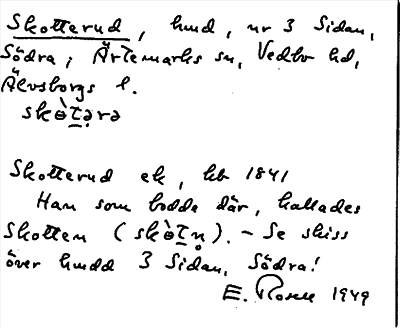 Skotterud, hmd, nr 3 Sidan,
Södra, Ärtemarks sn, Vedbo hd,
Älvsborgs l.
skòt̠ərə
Skotterud ek, hb 1841
Han som bodde där, kallades
Skotten (skòt̠n̥). – Se skiss
över hmdd 3 Sidan, Södra!
E. Rosell 1949